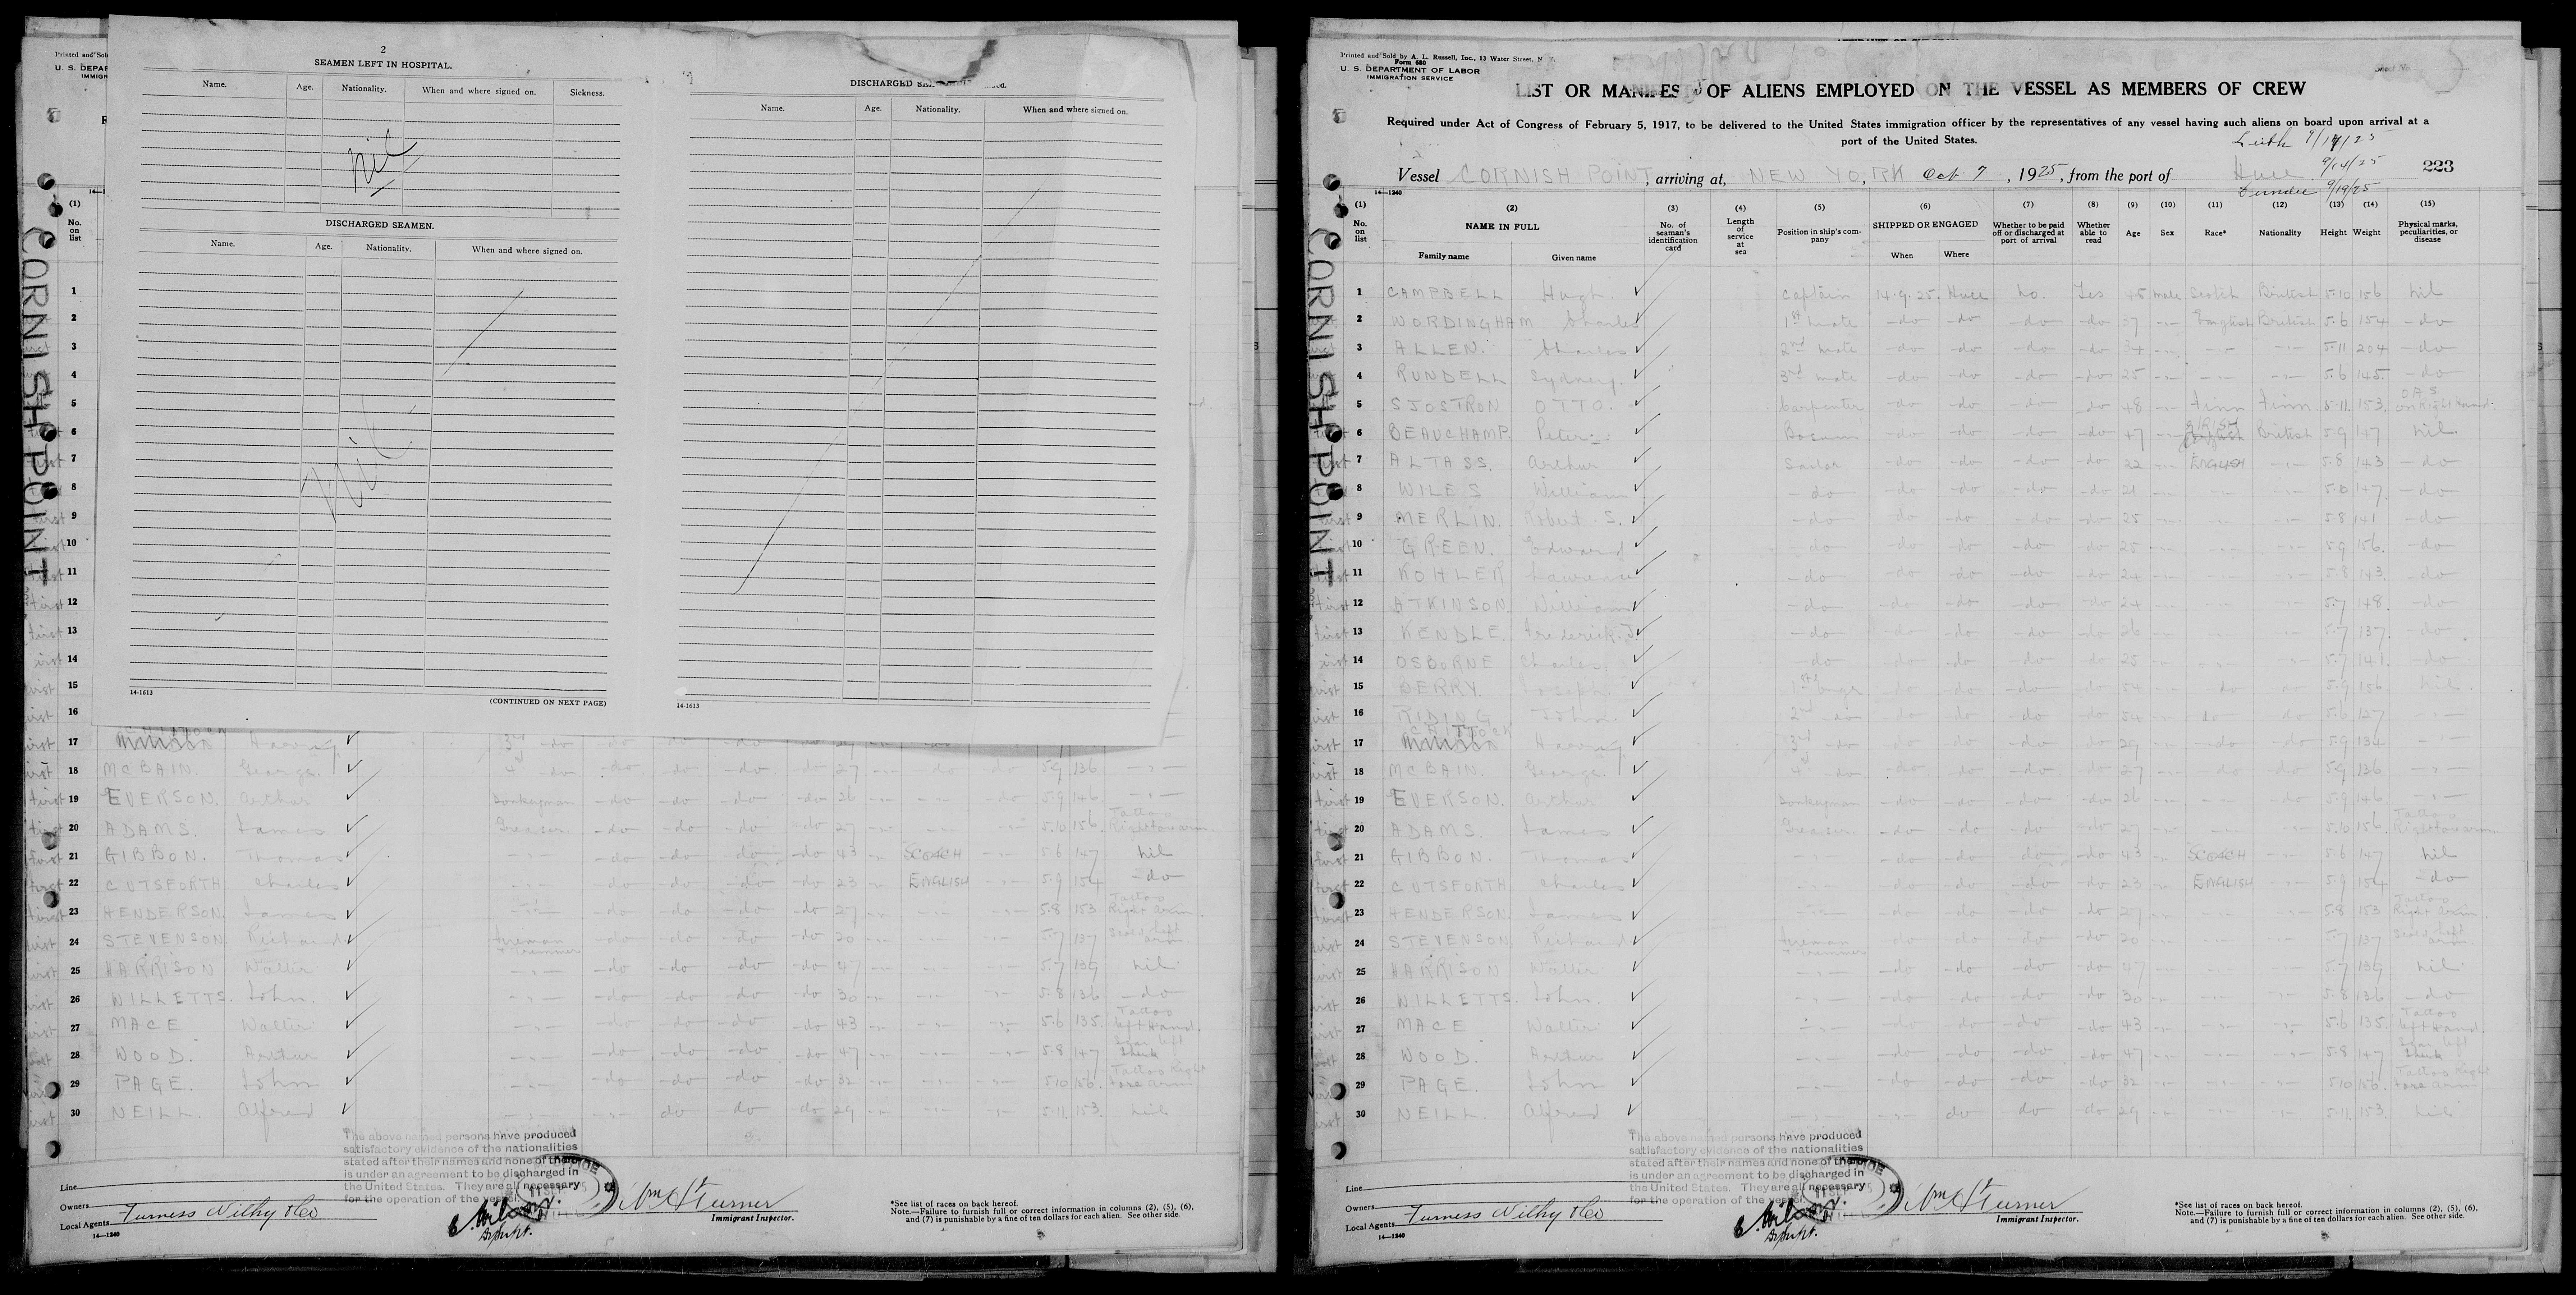 Printed and Sol
U. S. DEPAR
IMMIGR
2
SEAMEN LEFT IN HOSPITAL.
Name. Age. Nationality. When and where signed on. Sickness.
nil
DISCHARGED SEAMEN.
Name. Age. Nationality. When and where signed on.
nil
14-1613
(CONTINUED ON NEXT PAGE)
DISCHARGED
Name. Age. Nationality. When and where signed on.
14-1613
CORNISH POINT
(1)
No. on list
1
2
3
4
5
6
7
8
9
10
11
12
13
14
15
16
17 Harry 3rd do do do do do 29 do do 5.9 134
18 MCBAIN. George. 4 do do do do do 27 do do 5.9 136
19 EVERSON. Arthur Donkeyman do do do do 26 do 5.9 146
20 ADAMS. James Greaser do do do do 27 5.10 156. Tattoo Right forearm
21 GIBBON. Thomas do do do do 43 SCOTCH 5.6 147 nil
22 CUTSFORTH Charles do do do do 23 ENGLISH 5.9 154 do
23 HENDERSON. James do do do do 27 5.8 153 Tattoo Right arm.
24 STEVENSON Richard fireman + trimmer do do do do 20 5.7 137 left arm
25 HARRISON Walter do do do do 47 5.7 139 nil
26 WILLETTS. John. do do do do 30 5.8 136 do
27 MACE Walter do do do do 43 5.6 135. Tattoo left hand.
28 WOOD. Arthur do do do do 47 5.8 147 Scar left cheek
29 PAGE. John do do do do 32 5.10 156. Tattoo Right fore arm
30 NEILL. Alfred do do do 29 5.11. 153. nil
The above named persons have produced
satisfactory evidence of the nationalities
stated after their names and none of them
is under an agreement to be discharged in
the United States. They are all necessary
for the operation of the vessel.
Line
Owners
Local Agents Furness Withy & Co
14—1240
Immigrant Inspector.
*See list of races on back hereof.
Note.—Failure to furnish full or correct information in columns (2), (5), (6),
and (7) is punishable by a fine of ten dollars for each alien. See other side.
Printed and Sold by A. L. Russell, Inc., 13 Water Street, N. Y.
Form 680
U. S. DEPARTMENT OF LABOR
IMMIGRATION SERVICE
Sheet No.
LIST OR MANIFEST OF ALIENS EMPLOYED ON THE VESSEL AS MEMBERS OF CREW
Required under Act of Congress of February 5, 1917, to be delivered to the United States immigration officer by the representatives of any vessel having such aliens on board upon arrival at a
port of the United States.
Leith 9/17/25
Vessel CORNISH POINT, arriving at, NEW YORK Oct 7, 1925, from the port of Hull 9/14/25
Dundee 9/19/25
223
14—1240
CORNISH POINT
(1) (2) (3) (4) (5) (6) (7) (8) (9) (10) (11) (12) (13) (14) (15)
No. on list NAME IN FULL No. of seaman's identification card Length of service at sea Position in ship's company SHIPPED OR ENGAGED Whether to be paid off or discharged at port of arrival Whether able to read Age Sex Race* Nationality Height Weight Physical marks, peculiarities, or disease
Family name Given name When Where
1 CAMPBELL Hugh. Captain 14.9.25. Hull no. Yes 45 male Scotch British 5.10 156 nil
2 WORDINGHAM Charles 1st mate do do do do 37 English British 5.6 154 do
3 ALLEN. Charles 2nd mate do do do do 34 5.11 204 do
4 RUNDELL Sydney. 3rd mate do do do do 25 5.6 145. do
5 SJOSTRON OTTO. Carpenter do do do do 48 Finn Finn 5.11. 153. on Right Hand.
6 BEAUCHAMP. Peter. Bosun do do do do 47 IRISH British 5.9 147 nil.
7 ALTASS. Arthur Sailor do do do do 22 ENGLISH 5.8 143 do
8 WILES William do do do do do 21 5.10 147 do
9 MERLIN. Robert S. do do do do do 25 5.8 141 do
10 GREEN. Edward do do do do do 25 5.9 156. do
11 KOHLER Lawrence do do do do do 24 5.8 143. do
12 ATKINSON William do do do do do 24 5.7 148. do
13 KENDLE. Frederick. J. do do do do do 26 5.7 137. do
14 OSBORNE Charles. do do do do do 25 5.7 141. do
15 BERRY. Joseph. 1st Engr do do do do 54 do do 5.9 156 nil.
16 RIDING John. 2nd do do do do do 54 do do 5.6 127
17 CRITTOCK Harry 3rd do do do do do 29 do do 5.9 134
18 MCBAIN. George. 4 do do do do do 27 do do 5.9 136
19 EVERSON. Arthur Donkeyman do do do do 26 do 5.9 146.
20 ADAMS. James Greaser do do do do 27 5.10 156. Tattoo Right forearm
21 GIBBON. Thomas do do do do 43 SCOTCH 5.6 147 nil
22 CUTSFORTH Charles do do do do 23 ENGLISH 5.9 154 do
23 HENDERSON. James do do do do 27 5.8 153 Tattoo Right arm.
24 STEVENSON Richard fireman + trimmer do do do do 20 5.7 137 left arm
25 HARRISON Walter do do do do 47 5.7 139 nil
26 WILLETTS. John. do do do do 30 5.8 136 do
27 MACE Walter do do do do 43 5.6 135. Tattoo left hand.
28 WOOD. Arthur do do do do 47 5.8 147 Scar left cheek
29 PAGE. John do do do do 32 5.10 156. Tattoo Right fore arm
30 NEILL. Alfred do do do 29 5.11. 153. nil
The above named persons have produced
satisfactory evidence of the nationalities
stated after their names and none of them
is under an agreement to be discharged in
the United States. They are all necessary
for the operation of the vessel.
Line
Owners
Local Agents Furness Withy & Co
14—1240
Immigrant Inspector.
*See list of races on back hereof.
Note.—Failure to furnish full or correct information in columns (2), (5), (6),
and (7) is punishable by a fine of ten dollars for each alien. See other side.